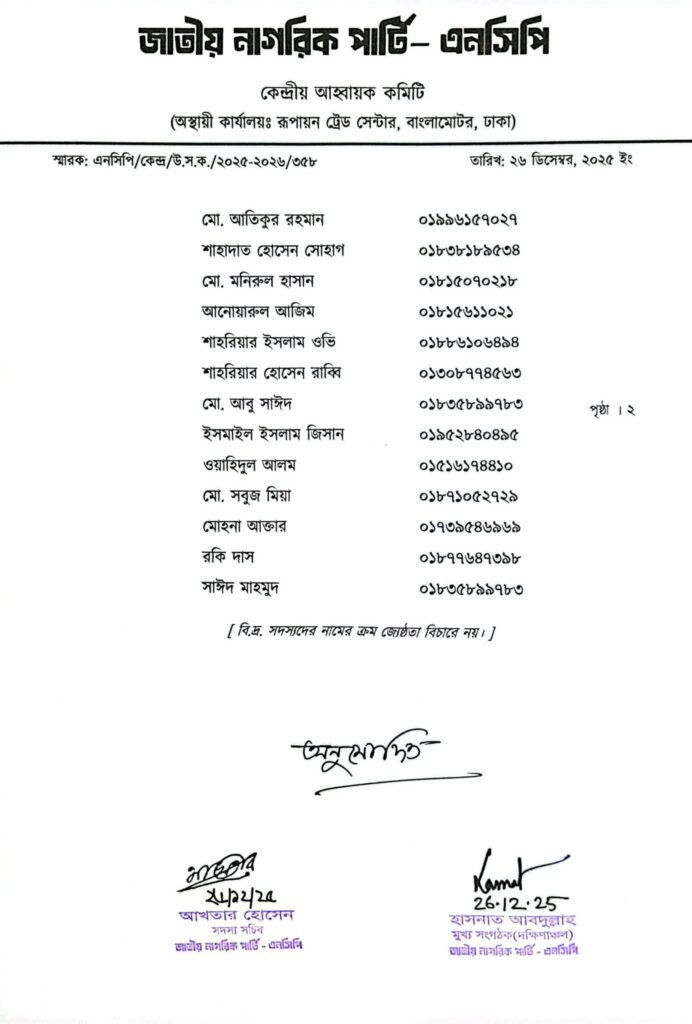 জাতীয় নাগরিক পার্টি– এনসিপি
কেন্দ্রীয় আহ্বায়ক কমিটি
(অস্থায়ী কার্যালয়ঃ রূপায়ন ট্রেড সেন্টার, বাংলামোটর, ঢাকা)
স্মারক: এনসিপি/কেন্দ্র/উ.স.ক./২০২৫-২০২৬/৩৫৮ তারিখ: ২৬ ডিসেম্বর, ২০২৫ ইং
মো. আতিকুর রহমান ০১৯৯৬১৫৭০২৭
শাহাদাত হোসেন সোহাগ ০১৮৩৮১৮৯৫৩৪
মো. মনিরুল হাসান ০১৮১৫০৭০২১৮
আনোয়ারুল আজিম ০১৮১৫৬১১০২১
শাহরিয়ার ইসলাম ওভি ০১৮৮৬১০৬৪৯৪
শাহরিয়ার হোসেন রাব্বি ০১৩০৮৭৭৪৫৬৩
মো. আবু সাঈদ ০১৮৩৫৮৯৯৭৮৩
পৃষ্ঠা । ২
ইসমাইল ইসলাম জিসান ০১৯৫২৮৪০৪৯৫
ওয়াহিদুল আলম ০১৫১৬১৭৪৪১০
মো. সবুজ মিয়া ০১৮৭১০৫২৭২৯
মোহনা আক্তার ০১৭৩৯৫৪৬৯৬৯
রকি দাস ০১৮৭৭৬৪৭৩৯৮
সাঈদ মাহমুদ ০১৮৩৫৮৯৯৭৮৩
[ বি.দ্র. সদস্যদের নামের ক্রম জ্যেষ্ঠতা বিচারে নয়। ]
অনুমোদিত
26.12.25
আখতার হোসেন
সদস্য সচিব
জাতীয় নাগরিক পার্টি - এনসিপি
হাসনাত আবদুল্লাহ
মুখ্য সংগঠক(দক্ষিণাঞ্চল)
জাতীয় নাগরিক পার্টি - এনসিপি